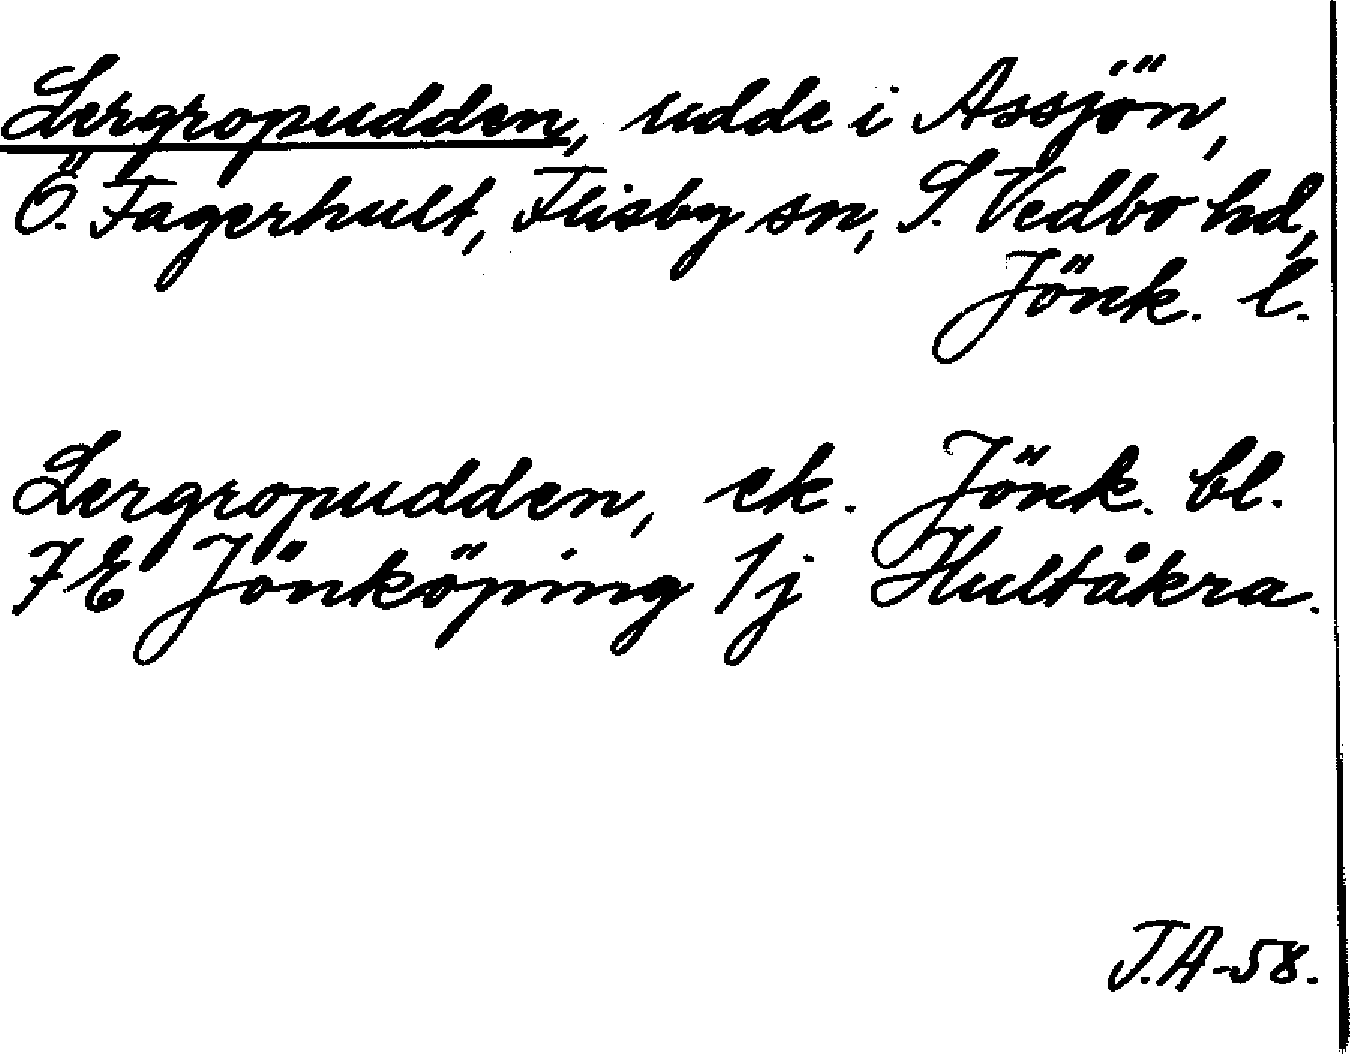 Lergropudden, udde i Assjön,
Ö. Fagerhult, Flisby sn, S. Vedbo hd,
Jönk. l.
Lergropudden, ek. Jönk. bl.
7 E Jönköping 1j Hultåkra.
J.A-58.